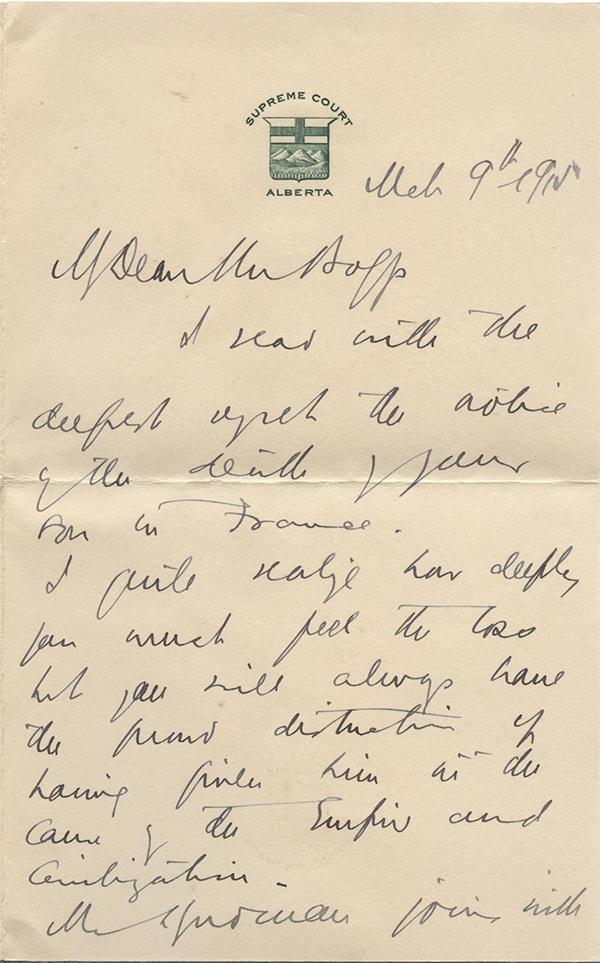 SUPREME COURT
ALBERTA
Mch 9th
My Dear Mr
I read with the
deepest regret the notice
of the death of your
son in France.
I quite realize how deeply
you must feel the loss
but you will always have
the proud distinction of
having given him in the
cause of the Empire and
Civilization.
joins with